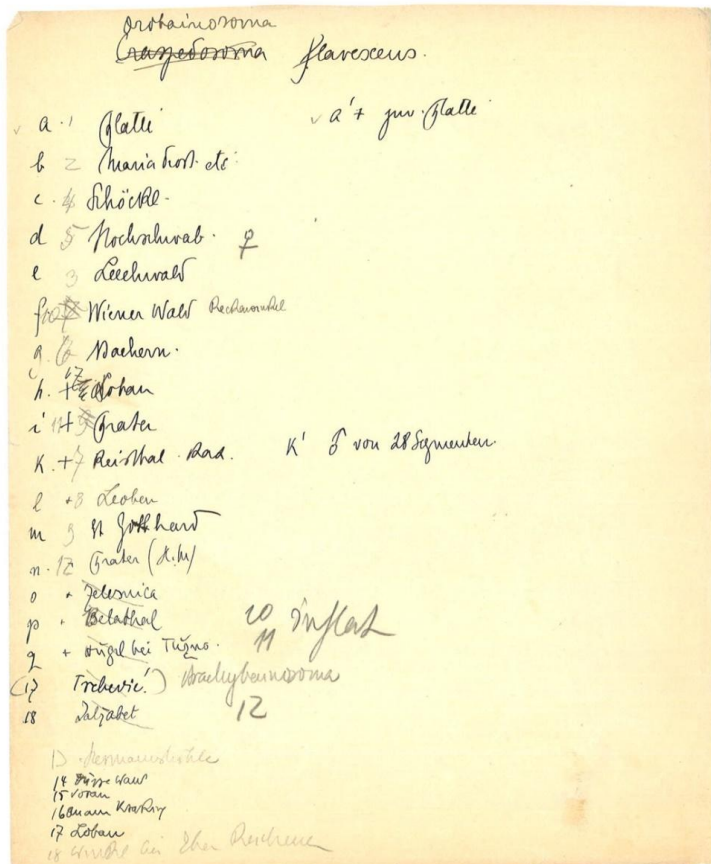 Orobainosoma
Craspedosoma flavescens.
a. 1 Platte
a'+ juv. Platte
b 2 Maria Trost. etc.
c. 4 Schöckl.
d 5 Hochschwab. ♀
e 3 Leechwald
f Wiener Wald Rekawinkel
g. 6 Bachern.
h. + Loban
i + Prater
K. + 7 Reisthal. Rax. K' ♂ von 28 Segmenten.
l +8 Leoben
m 9 St Gotthard
n. 12 Prater (H.M)
o + Jelesnica
p . Belathal
q + Hügel bei
(17 Trebević.) Brachybainosoma
10
11 inflat
18 12
13 Hermannshöhle
14 Wald
15 Vorau
16
17 Loban
18 bei